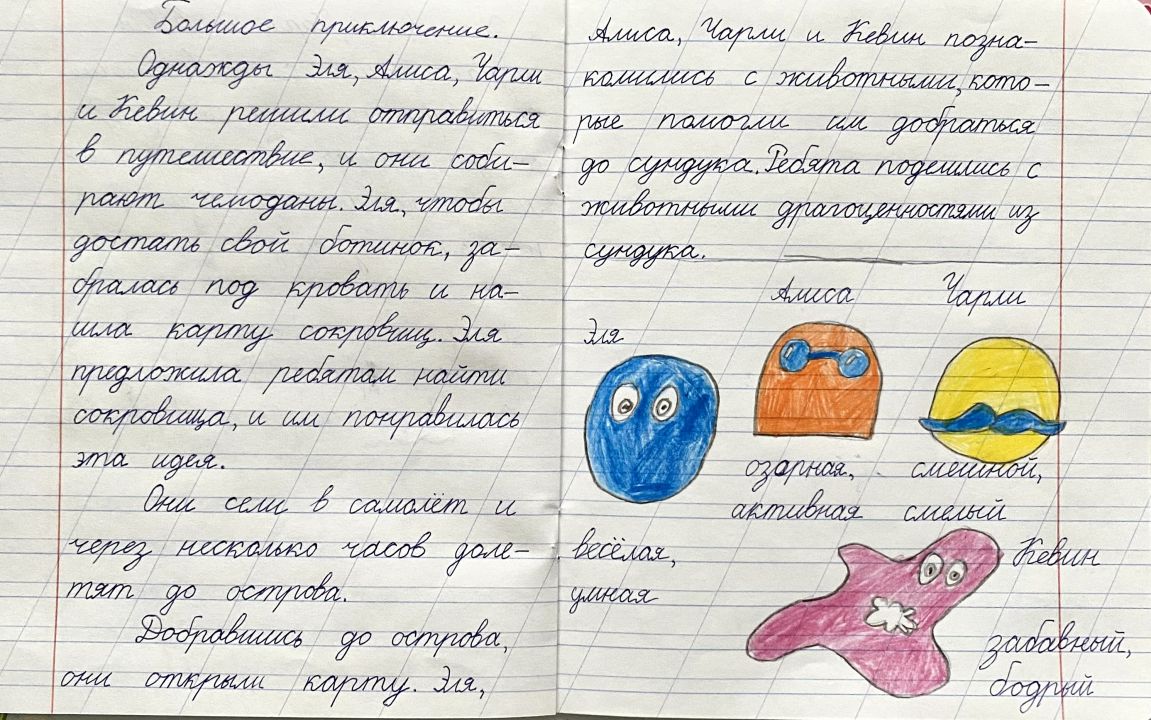 Большое приключение.
Однажды Эля, Алиса, Чарли
и Кевин решили отправиться
в путешествие, и они соби-
рают чемоданы. Эля, чтобы
достать свой ботинок, за-
бралась под кровать и на-
шла карту сокровищ. Эля
предложила ребятам найти
сокровища, и им понравилась
эта идея.
Они сели в самолёт и
через несколько часов доле-
тят до острова.
Добравшись до острова,
они открыли карту. Эля,
Алиса, Чарли и Кевин позна-
комились с животными, кото-
рые помогли им добраться
до сундука. Ребята поделились с
животными драгоценностями из
сундука.
Алиса Чарли
Эля
озорная, смешной,
активная смелый
весёлая, Кевин
умная
забавный,
бодрый